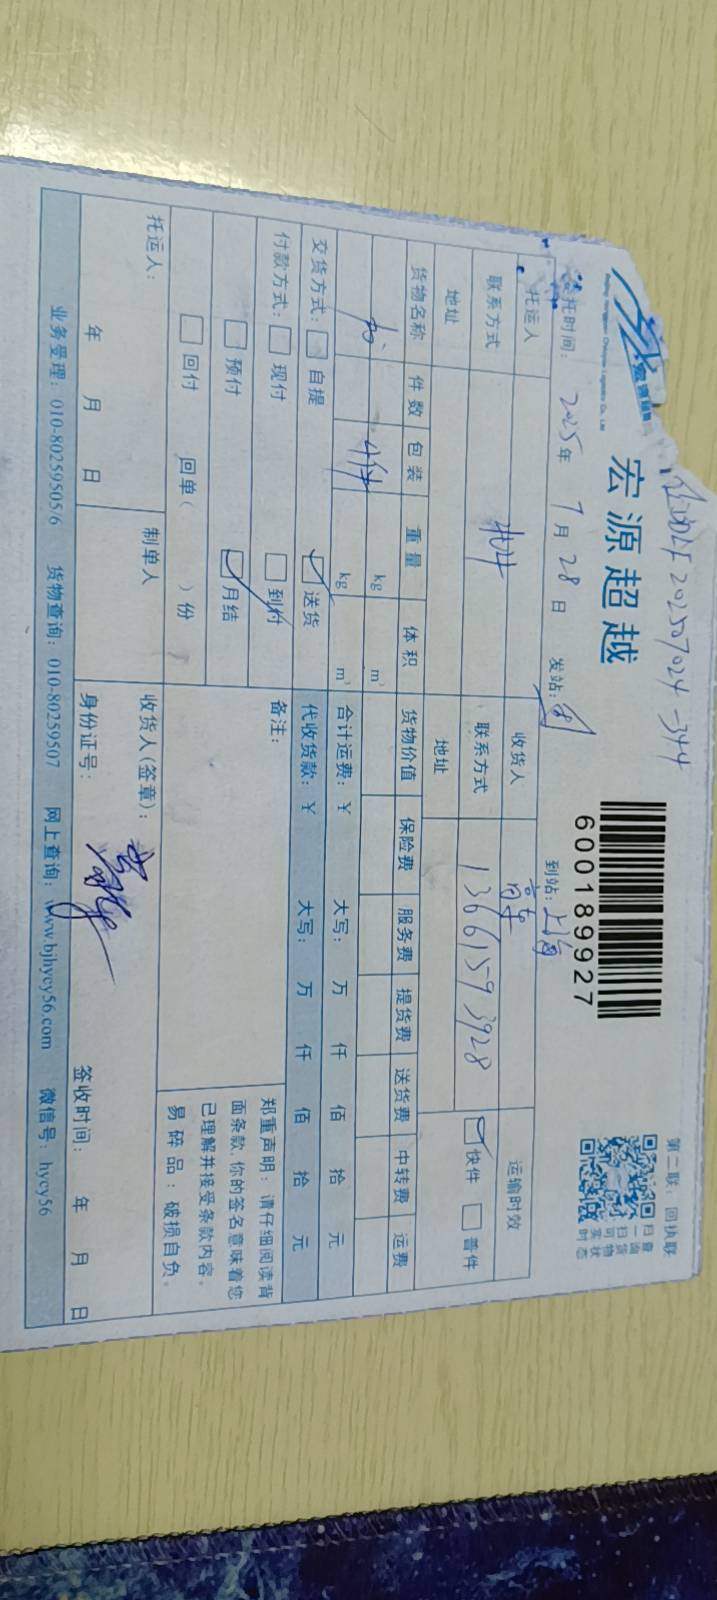 202507024-344
宏源超越
600189927
第二联：回执联
扫一扫可实时
查询货物状态
托时间： 2025年 7月 28日 发站： 到站：上海
托运人 收货人 运输时效
联系方式 联系方式 13661593928 快件 普件
地址 地址
货物名称 件数 包装 重量 体积 货物价值 保险费 服务费 提货费 送货费 中转费 运费
kg m³
4件 kg m³ 合计运费：￥ 大写： 万 仟 佰 拾 元
交货方式： 自提 送货 代收货款：￥ 大写： 万 仟 佰 拾 元
付款方式： 现付 到付 备注：
预付 月结
回付 回单（ ）份
郑重声明：请仔细阅读背
面条款，你的签名意味着您
已理解并接受条款内容。
易碎品：破损自负。
托运人： 制单人 收货人(签章)：
年 月 日 身份证号： 签收时间： 年 月 日
业务受理：010-80259505/6 货物查询：010-80259507 网上查询：www.bjhycy56.com 微信号：hycy56